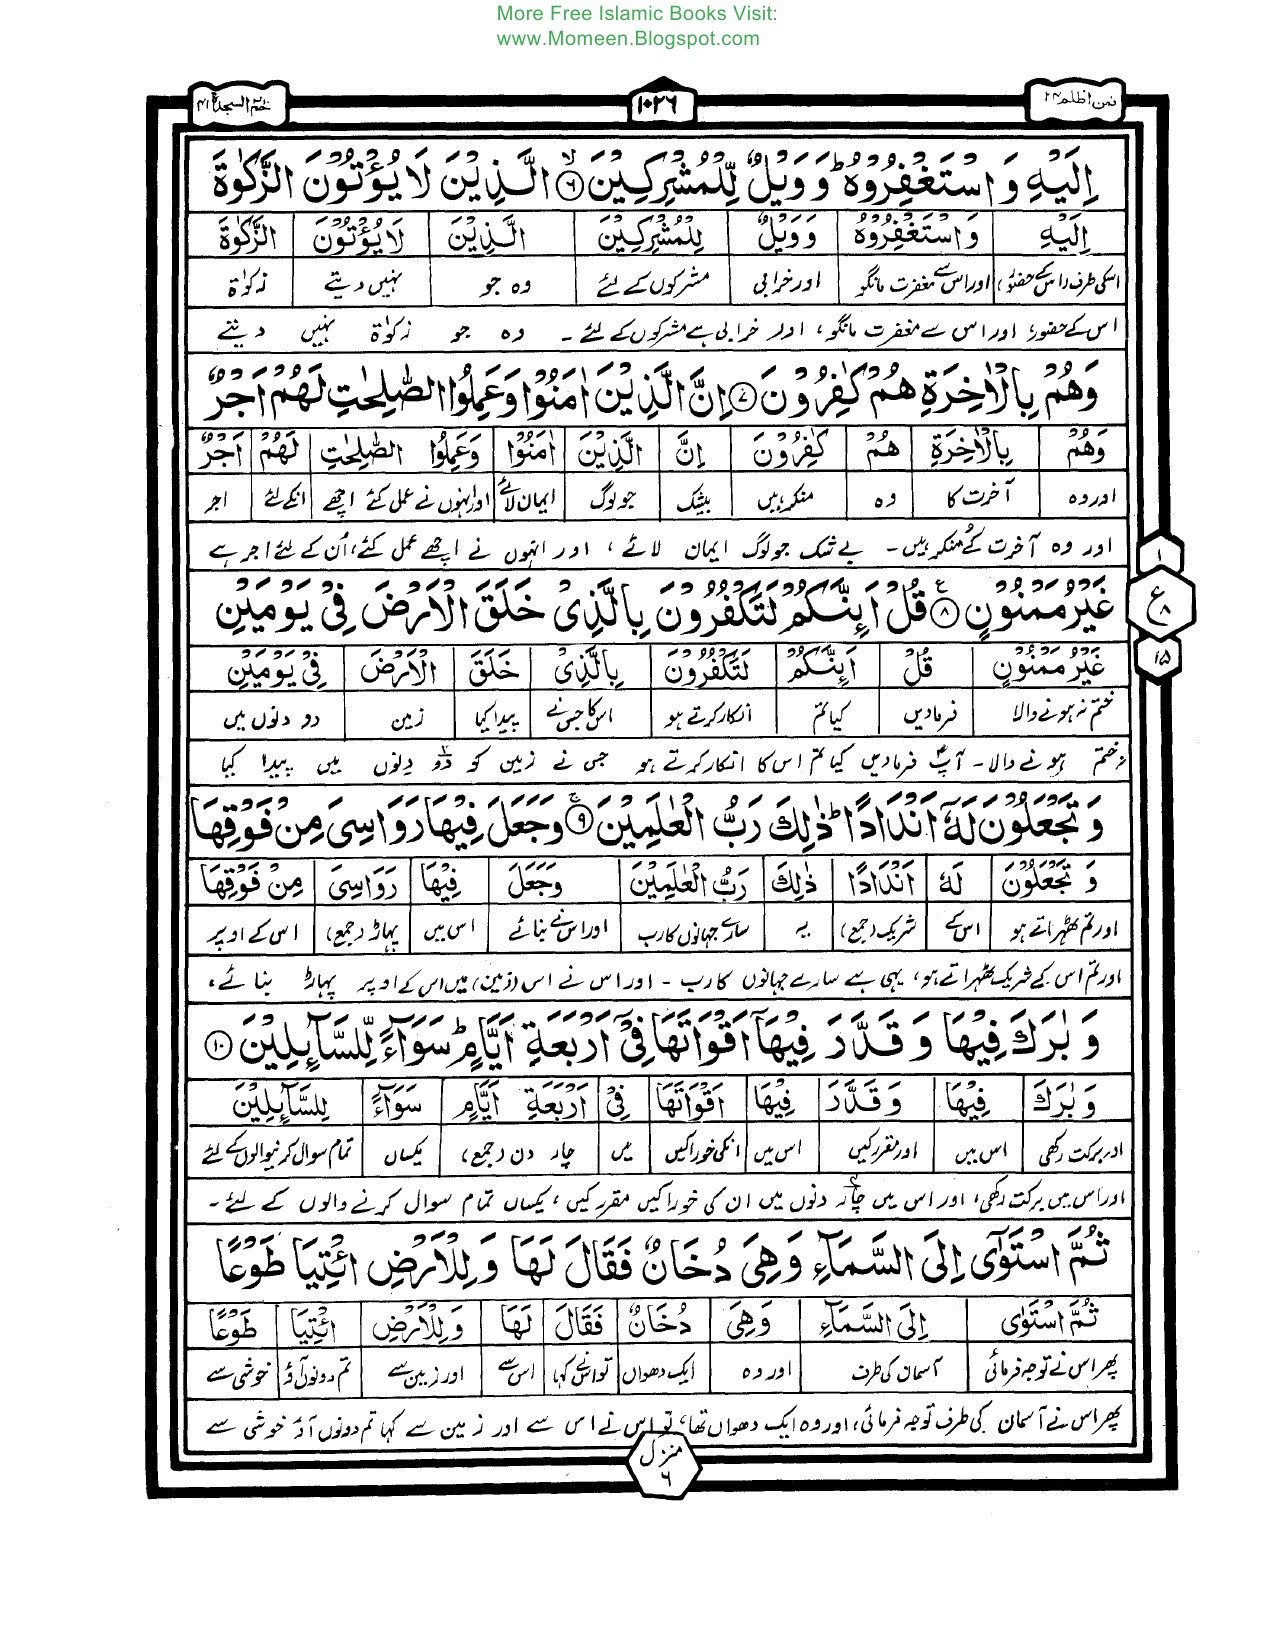 More Free Islamic Books Visit:
www.Momeen.Blogspot.com
فمن اظلم ۲۴
۱۰۲۶
حٰمۤ السجدۃ ۴۱
اِلَيْهِ وَ اسْتَغْفِرُوْهُ ؕ وَ وَيْلٌ لِّلْمُشْرِكِيْنَ ۙ۶ الَّذِيْنَ لَا يُؤْتُوْنَ الزَّكٰوةَ
اِلَيْهِ | وَاسْتَغْفِرُوْهُ | وَ وَيْلٌ | لِلْمُشْرِكِيْنَ | الَّذِيْنَ | لَا يُؤْتُوْنَ | الزَّكٰوةَ
اسکی طرف (اس کے حضور) | اور اس سے مغفرت مانگو | اور خرابی | مشرکوں کے لئے | وہ جو | نہیں دیتے | زکوٰۃ
اس کے حضور، اور اس سے مغفرت مانگو، اور خرابی ہے مشرکوں کے لئے ۔ وہ جو زکوٰۃ نہیں دیتے
وَهُمْ بِالْاٰخِرَةِ هُمْ كٰفِرُوْنَ ۷ اِنَّ الَّذِيْنَ اٰمَنُوْا وَعَمِلُوا الصّٰلِحٰتِ لَهُمْ اَجْرٌ
وَهُمْ | بِالْاٰخِرَةِ | هُمْ | كٰفِرُوْنَ | اِنَّ | الَّذِيْنَ | اٰمَنُوْا | وَعَمِلُوا الصّٰلِحٰتِ | لَهُمْ | اَجْرٌ
اور وہ | آخرت کا | وہ | منکر ہیں | بیشک | جو لوگ | ایمان لائے | اور انہوں نے عمل کئے اچھے | انکے لئے | اجر
اور وہ آخرت کے منکر ہیں ۔ بے شک جو لوگ ایمان لائے ، اور انہوں نے اچھے عمل کئے، اُن کے لئے اجر ہے
غَيْرُ مَمْنُوْنٍ ۸ع قُلْ اَىِٕنَّكُمْ لَتَكْفُرُوْنَ بِالَّذِىْ خَلَقَ الْاَرْضَ فِىْ يَوْمَيْنِ
۱
ع ۸
۱۵
غَيْرُ مَمْنُوْنٍ | قُلْ | اَىِٕنَّكُمْ | لَتَكْفُرُوْنَ | بِالَّذِىْ | خَلَقَ | الْاَرْضَ | فِىْ يَوْمَيْنِ
ختم نہ ہونے والا | فرمادیں | کیا تم | انکار کرتے ہو | اس کا جس نے | پیدا کیا | زمین | دو دنوں میں
نہ ختم ہونے والا ۔ آپؐ فرمادیں کیا تم اس کا انکار کرتے ہو جس نے زمین کو دو دنوں میں پیدا کیا
وَ تَجْعَلُوْنَ لَهٗۤ اَنْدَادًا ؕ ذٰلِكَ رَبُّ الْعٰلَمِيْنَ ۚ۹ وَجَعَلَ فِيْهَا رَوَاسِىَ مِنْ فَوْقِهَا
وَ تَجْعَلُوْنَ | لَهٗ | اَنْدَادًا | ذٰلِكَ | رَبُّ الْعٰلَمِيْنَ | وَجَعَلَ | فِيْهَا | رَوَاسِىَ | مِنْ فَوْقِهَا
اور تم ٹھہراتے ہو | اس کے | شریک (جمع) | یہ | سارے جہانوں کا رب | اور اس نے بنائے | اس میں | پہاڑ (جمع) | اس کے اوپر
اور تم اس کے شریک ٹھہراتے ہو، یہی ہے سارے جہانوں کا رب ۔ اور اس نے اس (زمین) میں اس کے اوپر پہاڑ بنائے،
وَ بٰرَكَ فِيْهَا وَ قَدَّرَ فِيْهَاۤ اَقْوَاتَهَا فِىْۤ اَرْبَعَةِ اَيَّامٍ ؕ سَوَآءً لِّلسَّآىِٕلِيْنَ ۱۰
وَ بٰرَكَ | فِيْهَا | وَ قَدَّرَ | فِيْهَا | اَقْوَاتَهَا | فِىْ | اَرْبَعَةِ اَيَّامٍ | سَوَآءً | لِلسَّآىِٕلِيْنَ
اور برکت رکھی | اس میں | اور مقرر کیں | اس میں | انکی خوراکیں | میں | چار دن (جمع) | یکساں | تمام سوال کرنیوالوں کے لئے
اور اس میں برکت رکھی، اور اس میں چار دنوں میں ان کی خوراکیں مقرر کیں، یکساں تمام سوال کرنے والوں کے لئے ۔
ثُمَّ اسْتَوٰۤى اِلَى السَّمَآءِ وَ هِىَ دُخَانٌ فَقَالَ لَهَا وَ لِلْاَرْضِ ائْتِيَا طَوْعًا
ثُمَّ اسْتَوٰى | اِلَى السَّمَآءِ | وَهِىَ | دُخَانٌ | فَقَالَ | لَهَا | وَ لِلْاَرْضِ | ائْتِيَا | طَوْعًا
پھر اس نے توجہ فرمائی | آسمان کی طرف | اور وہ | ایک دھواں | تو اس نے کہا | اس سے | اور زمین سے | تم دونوں آؤ | خوشی سے
پھر اس نے آسمان کی طرف توجہ فرمائی، اور وہ ایک دھواں تھا، تو اس نے اس سے اور زمین سے کہا تم دونوں آؤ خوشی سے
منزل ۶